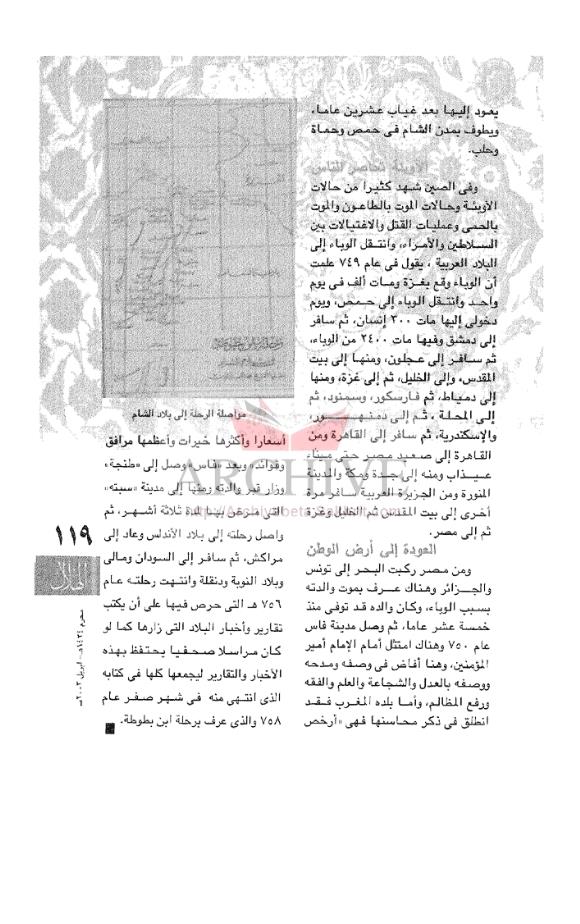 يعود إليها بعد غياب عشرين عاما،
ويطوف بمدن الشام فى حمص وحماة
وحلب.
الأوبئة تحاصر الناس
وفى الصين شهد كثيرا من حالات
الأوبئة وحالات الموت بالطاعون والموت
بالحمى وعمليات القتل والاغتيالات بين
السلاطين والأمراء، وانتقل الوباء إلى
البلاد العربية ، يقول فى عام ٧٤٩ علمت
أن الوباء وقع بغزة ومات ألف فى يوم
واحد وانتقل الوباء إلى حمص، ويوم
دخولى إليها مات ٣٠٠ إنسان، ثم سافر
إلى دمشق وفيها مات ٢٤٠٠ من الوباء،
ثم سافر إلى عجلون، ومنها إلى بيت
المقدس، وإلى الخليل، ثم إلى غزة، ومنها
إلى دمياط، ثم فارسكور، وسمنود، ثم
إلى المحلة ، ثم إلى دمنهور،
والإسكندرية، ثم سافر إلى القاهرة ومن
القاهرة إلى صعيد مصر حتى ميناء
عيذاب ومنه إلى جدة ومكة والمدينة
المنورة ومن الجزيرة العربية سافر مرة
أخرى إلى بيت المقدس ثم الخليل وغزة
ثم إلى مصر.
العودة إلى أرض الوطن
ومن مصر ركبت البحر إلى تونس
والجزائر وهناك عرف بموت والدته
بسبب الوباء، وكان والده قد توفى منذ
خمسة عشر عاما، ثم وصل مدينة فاس
عام ٧٥٠ وهناك امتثل أمام الإمام أمير
المؤمنين، وهنا أفاض فى وصفه ومدحه
ووصفه بالعدل والشجاعة والعلم والفقه
ورفع المظالم، وأما بلده المغرب فقد
انطلق فى ذكر محاسنها فهى «أرخص
مواصلة الرحلة إلى بلاد الشام
أسعارا وأكثرها خيرات وأعظمها مرافق
وفوائد» وبعد «فاس» وصل إلى «طنجة»
وزار قبر والدته ومنها إلى مدينة «سبته»
التى مرض بها لمدة ثلاثة أشهر، ثم
واصل رحلته إلى بلاد الأندلس وعاد إلى
مراكش، ثم سافر إلى السودان ومالى
وبلاد النوبة ودنقلة وانتهت رحلته عام
٧٥٦ هـ التى حرص فيها على أن يكتب
تقارير وأخبار البلاد التى زارها كما لو
كان مراسلا صحفيا يحتفظ بهذه
الأخبار والتقارير ليجمعها كلها فى كتابه
الذى انتهى منه فى شهر صفر عام
٧٥٨ والذى عرف برحلة ابن بطوطة.
١١٩
الهلال
محرم ١٤٢٤هـ - ابريل ٢٠٠٣مـ
ARCHIVE